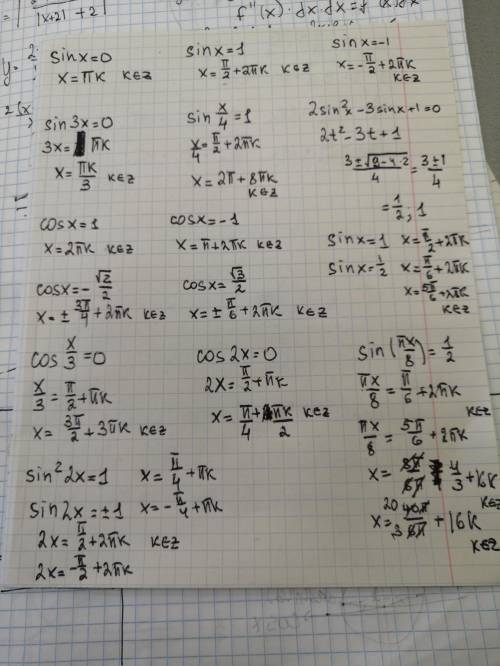 |x+2|+2
f''(x)·dx·dx=
y=
sinx=0
x=πk k∈z
sinx=1
x=π/2+2πk k∈z
sinx=-1
x=-π/2+2πk
k∈z
sin3x=0
3x=πk
x=πk/3 k∈z
sin x/4=1
x/4=π/2+2πk
x=2π+8πk
k∈z
2sin²x-3sinx+1=0
2t²-3t+1
3±√(9-4·2)/4=3±1/4
=1/2; 1
sinx=1 x=π/2+2πk
sinx=1/2 x=π/6+2πk
x=5π/6+2πk
k∈z
cosx=1
x=2πk k∈z
cosx=-1
x=π+2πk k∈z
cosx=-√2/2
x=±3π/4+2πk k∈z
cosx=√3/2
x=±π/6+2πk k∈z
cos x/3=0
x/3=π/2+πk
x=3π/2+3πk k∈z
cos2x=0
2x=π/2+πk
x=π/4+πk/2 k∈z
sin(πx/8)=1/2
πx/8=π/6+2πk
k∈z
πx/8=5π/6+2πk
x=8π/6π 4/3+16k
k∈z
x=20 40π/3 6π+16k
k∈z
sin²2x=1
sin2x=±1
2x=π/2+2πk k∈z
2x=-π/2+2πk
x=π/4+πk
x=-π/4+πk